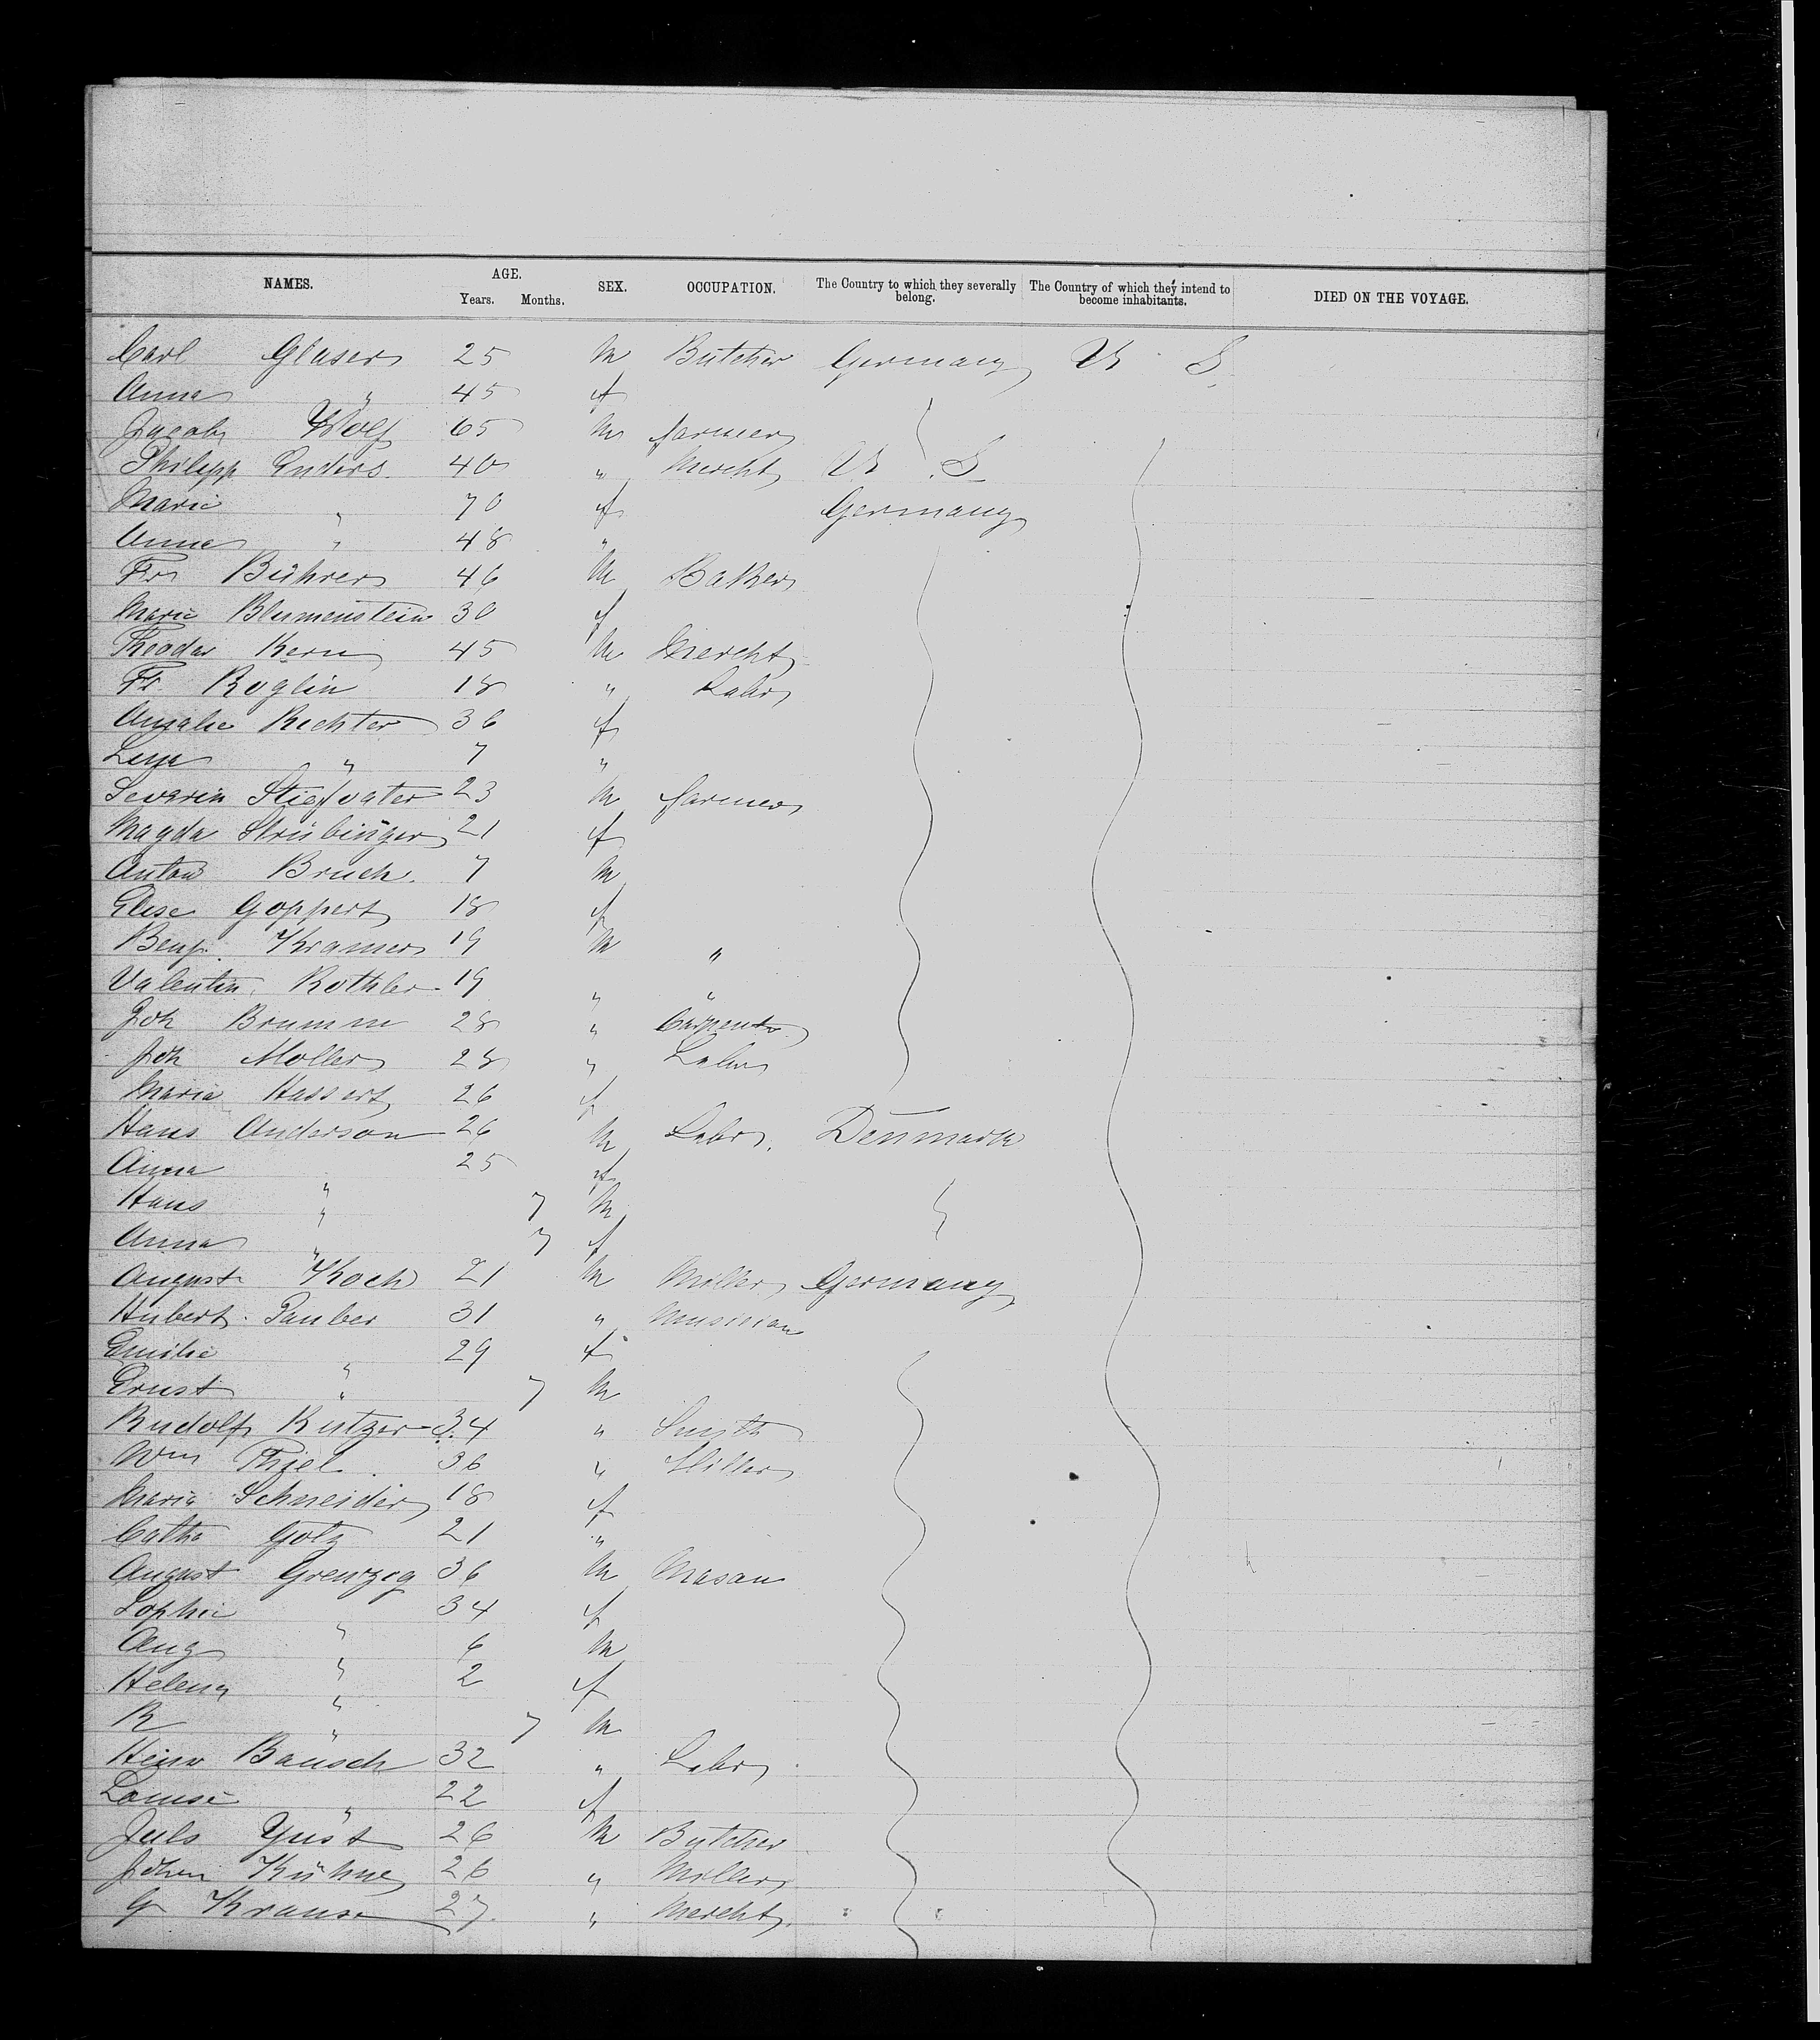 NAMES. AGE. Years. Months. SEX. OCCUPATION. The Country to which they severally belong. The Country of which they intend to become inhabitants. DIED ON THE VOYAGE.
Carl Glaser 25 M Butcher Germany U S
Anna " 45 f
Jacob Wolf 65 M farmer
Philipp Enders 40 " Mercht U. S.
Marie " 70 f Germany
Anna " 48 "
Fr Bührer 46 M Baker
Marie Blumenstein 30 f
Theodor Kern 45 M Mercht
Fr. Roglin 18 " Labr
Amalie Richter 36 f
Lena " 7 "
Severin Stiefvater 23 M farmer
Magda Strübinger 21 f
Anton Bruch 7 M
Elise Goppert 18 f
Benj. Kramer 19 M "
Valentin Rothler 19 " "
Joh Brumm 28 " Carpentr
Joh Moller 28 " Labr
Maria Hassert 26 f
Hans Anderson 26 M Labr. Denmark
Anna " 25 f
Hans " 7 M
Anna " 7 f
August Koch 21 M Miller Germany
Hubert Pauber 31 " Musician
Emilie " 29 f
Ernst " 7 M
Rudolf Kutzer 34 " Smith
Wm Thiel 36 " Miller
Maria Schneider 18 f
Catha Götz 21 "
August Grewzig 36 M Mason
Sophie " 34 f
Aug " 6 M
Helena " 2 f
R " 7 M
Heinr Bausch 32 " Labr
Louise " 22 f
Juls Yüst 26 M Butcher
Johan Kühne 26 " Miller
G Krause 27 " Mercht.